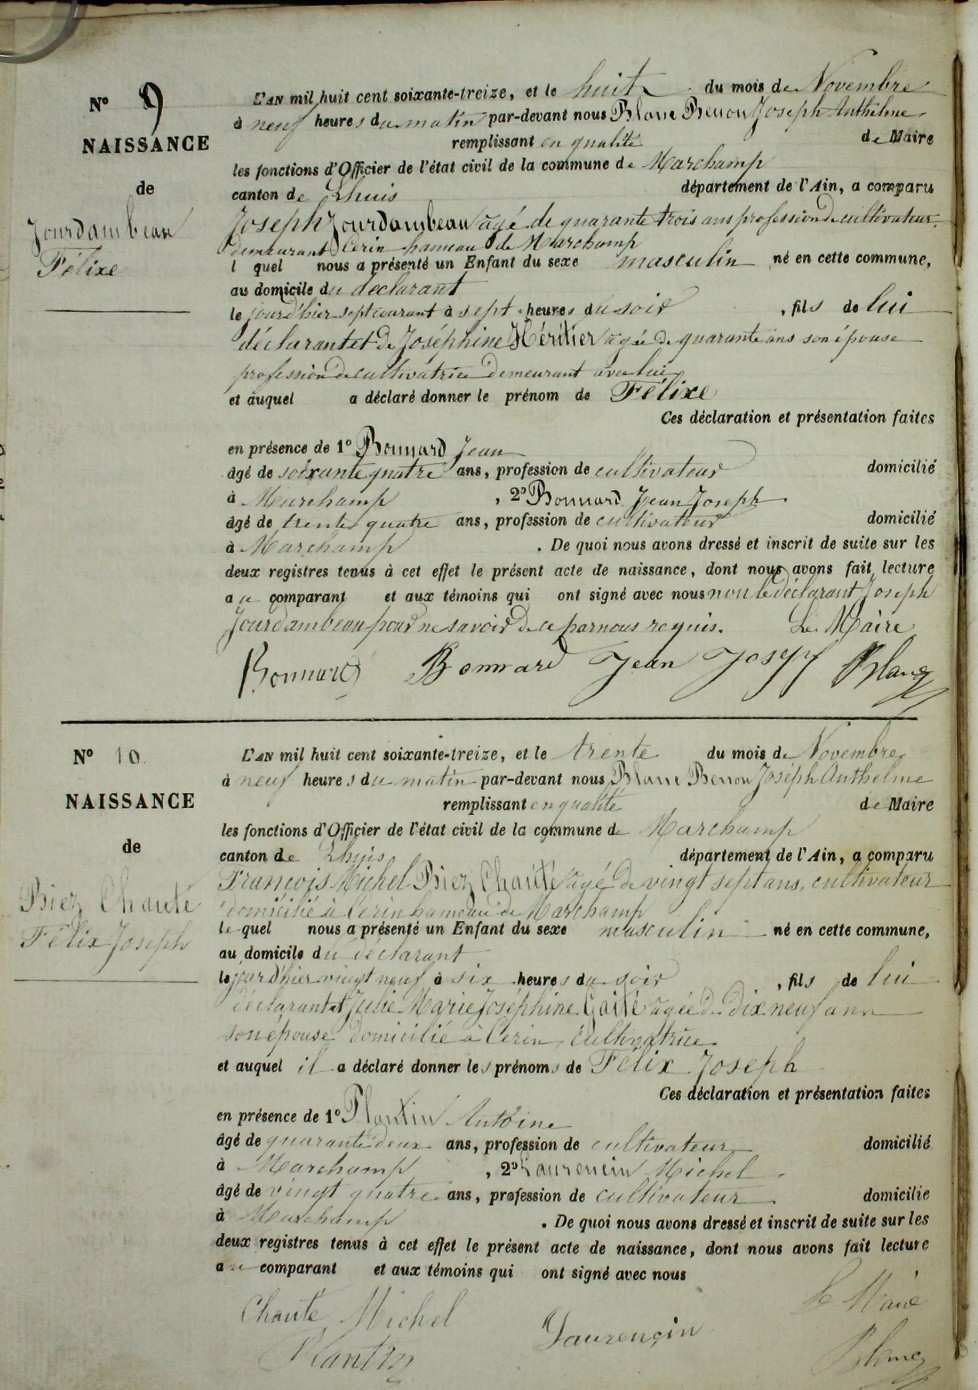 N° 9
NAISSANCE
de
Jourdambeau
Félixe
L'AN mil huit cent soixante-treize, et le huit du mois de Novembre
à neuf heures du matin par-devant nous Blanc Benon Joseph Anthelme
remplissant en qualité de Maire
les fonctions d'Officier de l'état civil de la commune de Marchamp
canton de Lhuis département de l'Ain, a comparu
Joseph Jourdambeau âgé de quarante trois ans profession de cultivateur
demeurant Cerin hameau de Marchamp
l quel nous a présenté un Enfant du sexe masculin né en cette commune,
au domicile du déclarant
le jourd'hier sept courant à sept heures du soir , fils de lui
déclarant et de Joséphine Héritier agée de quarante ans son épouse
profession de cultivatrice demeurant avec lui
et auquel a déclaré donner le prénom de Félixe
Ces déclaration et présentation faites
en présence de 1° Bonnard Jean
âgé de soixante quatre ans, profession de cultivateur domicilié
à Marchamp , 2° Bonnard Jean Joseph
âgé de trente quatre ans, profession de cultivateur domicilié
à Marchamp . De quoi nous avons dressé et inscrit de suite sur les
deux registres tenus à cet effet le présent acte de naissance, dont nous avons fait lecture
au comparant et aux témoins qui ont signé avec nous non le déclarant Joseph
Jourdambeau pour ne savoir de ce par nous requis. Le Maire
Bonnard Bonnard Jean Joseph Blanc
N° 10
NAISSANCE
de
Biez Chanté
Félix Joseph
L'AN mil huit cent soixante-treize, et le trente du mois de Novembre
à neuf heures du matin par-devant nous Blanc Benon Joseph Anthelme
remplissant en qualité de Maire
les fonctions d'Officier de l'état civil de la commune de Marchamp
canton de Lhuis département de l'Ain, a comparu
François Michel Biez Chanté âgé de vingt sept ans, cultivateur
domicilié à Cerin hameau de Marchamp
lequel nous a présenté un Enfant du sexe masculin né en cette commune,
au domicile du déclarant
le jourd'hier vingt neuf à six heures du soir , fils de lui
déclarant et Julie Marie Joséphine Gaité agée de dix neuf ans
son épouse domicilié à Cerin, cultivatrice
et auquel il a déclaré donner les prénoms de Félix Joseph
Ces déclaration et présentation faites
en présence de 1° Plantin Antoine
âgé de quarante deux ans, profession de cultivateur domicilié
à Marchamp , 2° Laurencin Michel
âgé de vingt quatre ans, profession de cultivateur domicilié
à Marchamp . De quoi nous avons dressé et inscrit de suite sur les
deux registres tenus à cet effet le présent acte de naissance, dont nous avons fait lecture
au comparant et aux témoins qui ont signé avec nous
Chanté Michel Le Maire
Plantin Laurençin Blanc